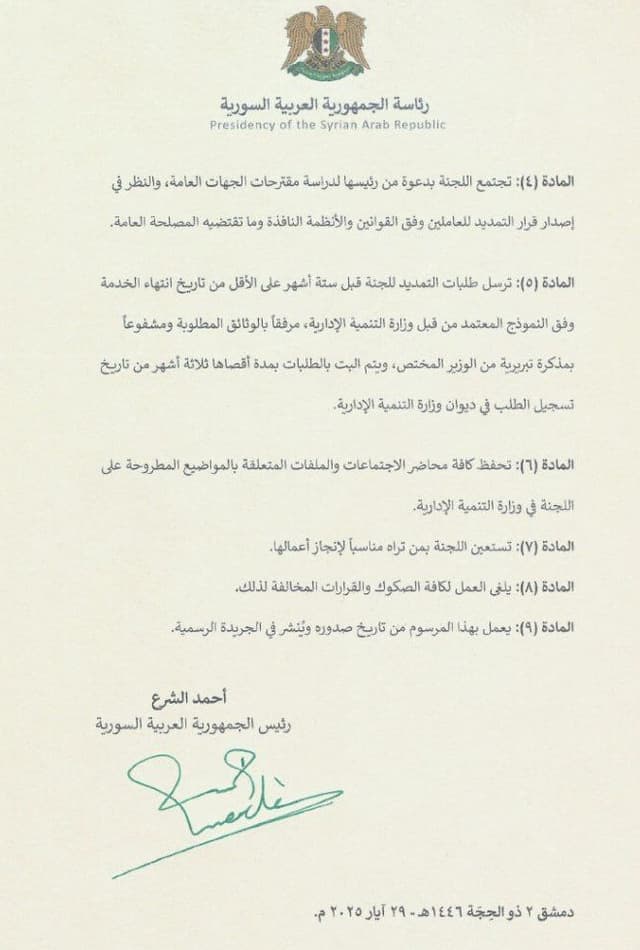 رئاسة الجمهورية العربية السورية
Presidency of the Syrian Arab Republic
المادة (٤): تجتمع اللجنة بدعوة من رئيسها لدراسة مقترحات الجهات العامة، والنظر في
إصدار قرار التمديد للعاملين وفق القوانين والأنظمة النافذة وما تقتضيه المصلحة العامة.
المادة (٥): ترسل طلبات التمديد للجنة قبل ستة أشهر على الأقل من تاريخ انتهاء الخدمة
وفق النموذج المعتمد من قبل وزارة التنمية الإدارية، مرفقاً بالوثائق المطلوبة ومشفوعاً
بمذكرة تبريرية من الوزير المختص، ويتم البت بالطلبات بمدة أقصاها ثلاثة أشهر من تاريخ
تسجيل الطلب في ديوان وزارة التنمية الإدارية.
المادة (٦): تحفظ كافة محاضر الاجتماعات والملفات المتعلقة بالمواضيع المطروحة على
اللجنة في وزارة التنمية الإدارية.
المادة (٧): تستعين اللجنة بمن تراه مناسباً لإنجاز أعمالها.
المادة (٨): يلغى العمل لكافة الصكوك والقرارات المخالفة لذلك.
المادة (٩): يعمل بهذا المرسوم من تاريخ صدوره ويُنشر في الجريدة الرسمية.
أحمد الشرع
رئيس الجمهورية العربية السورية
دمشق ٢ ذو الحِجّة ١٤٤٦هـ - ٢٩ أيار ٢٠٢٥ م.